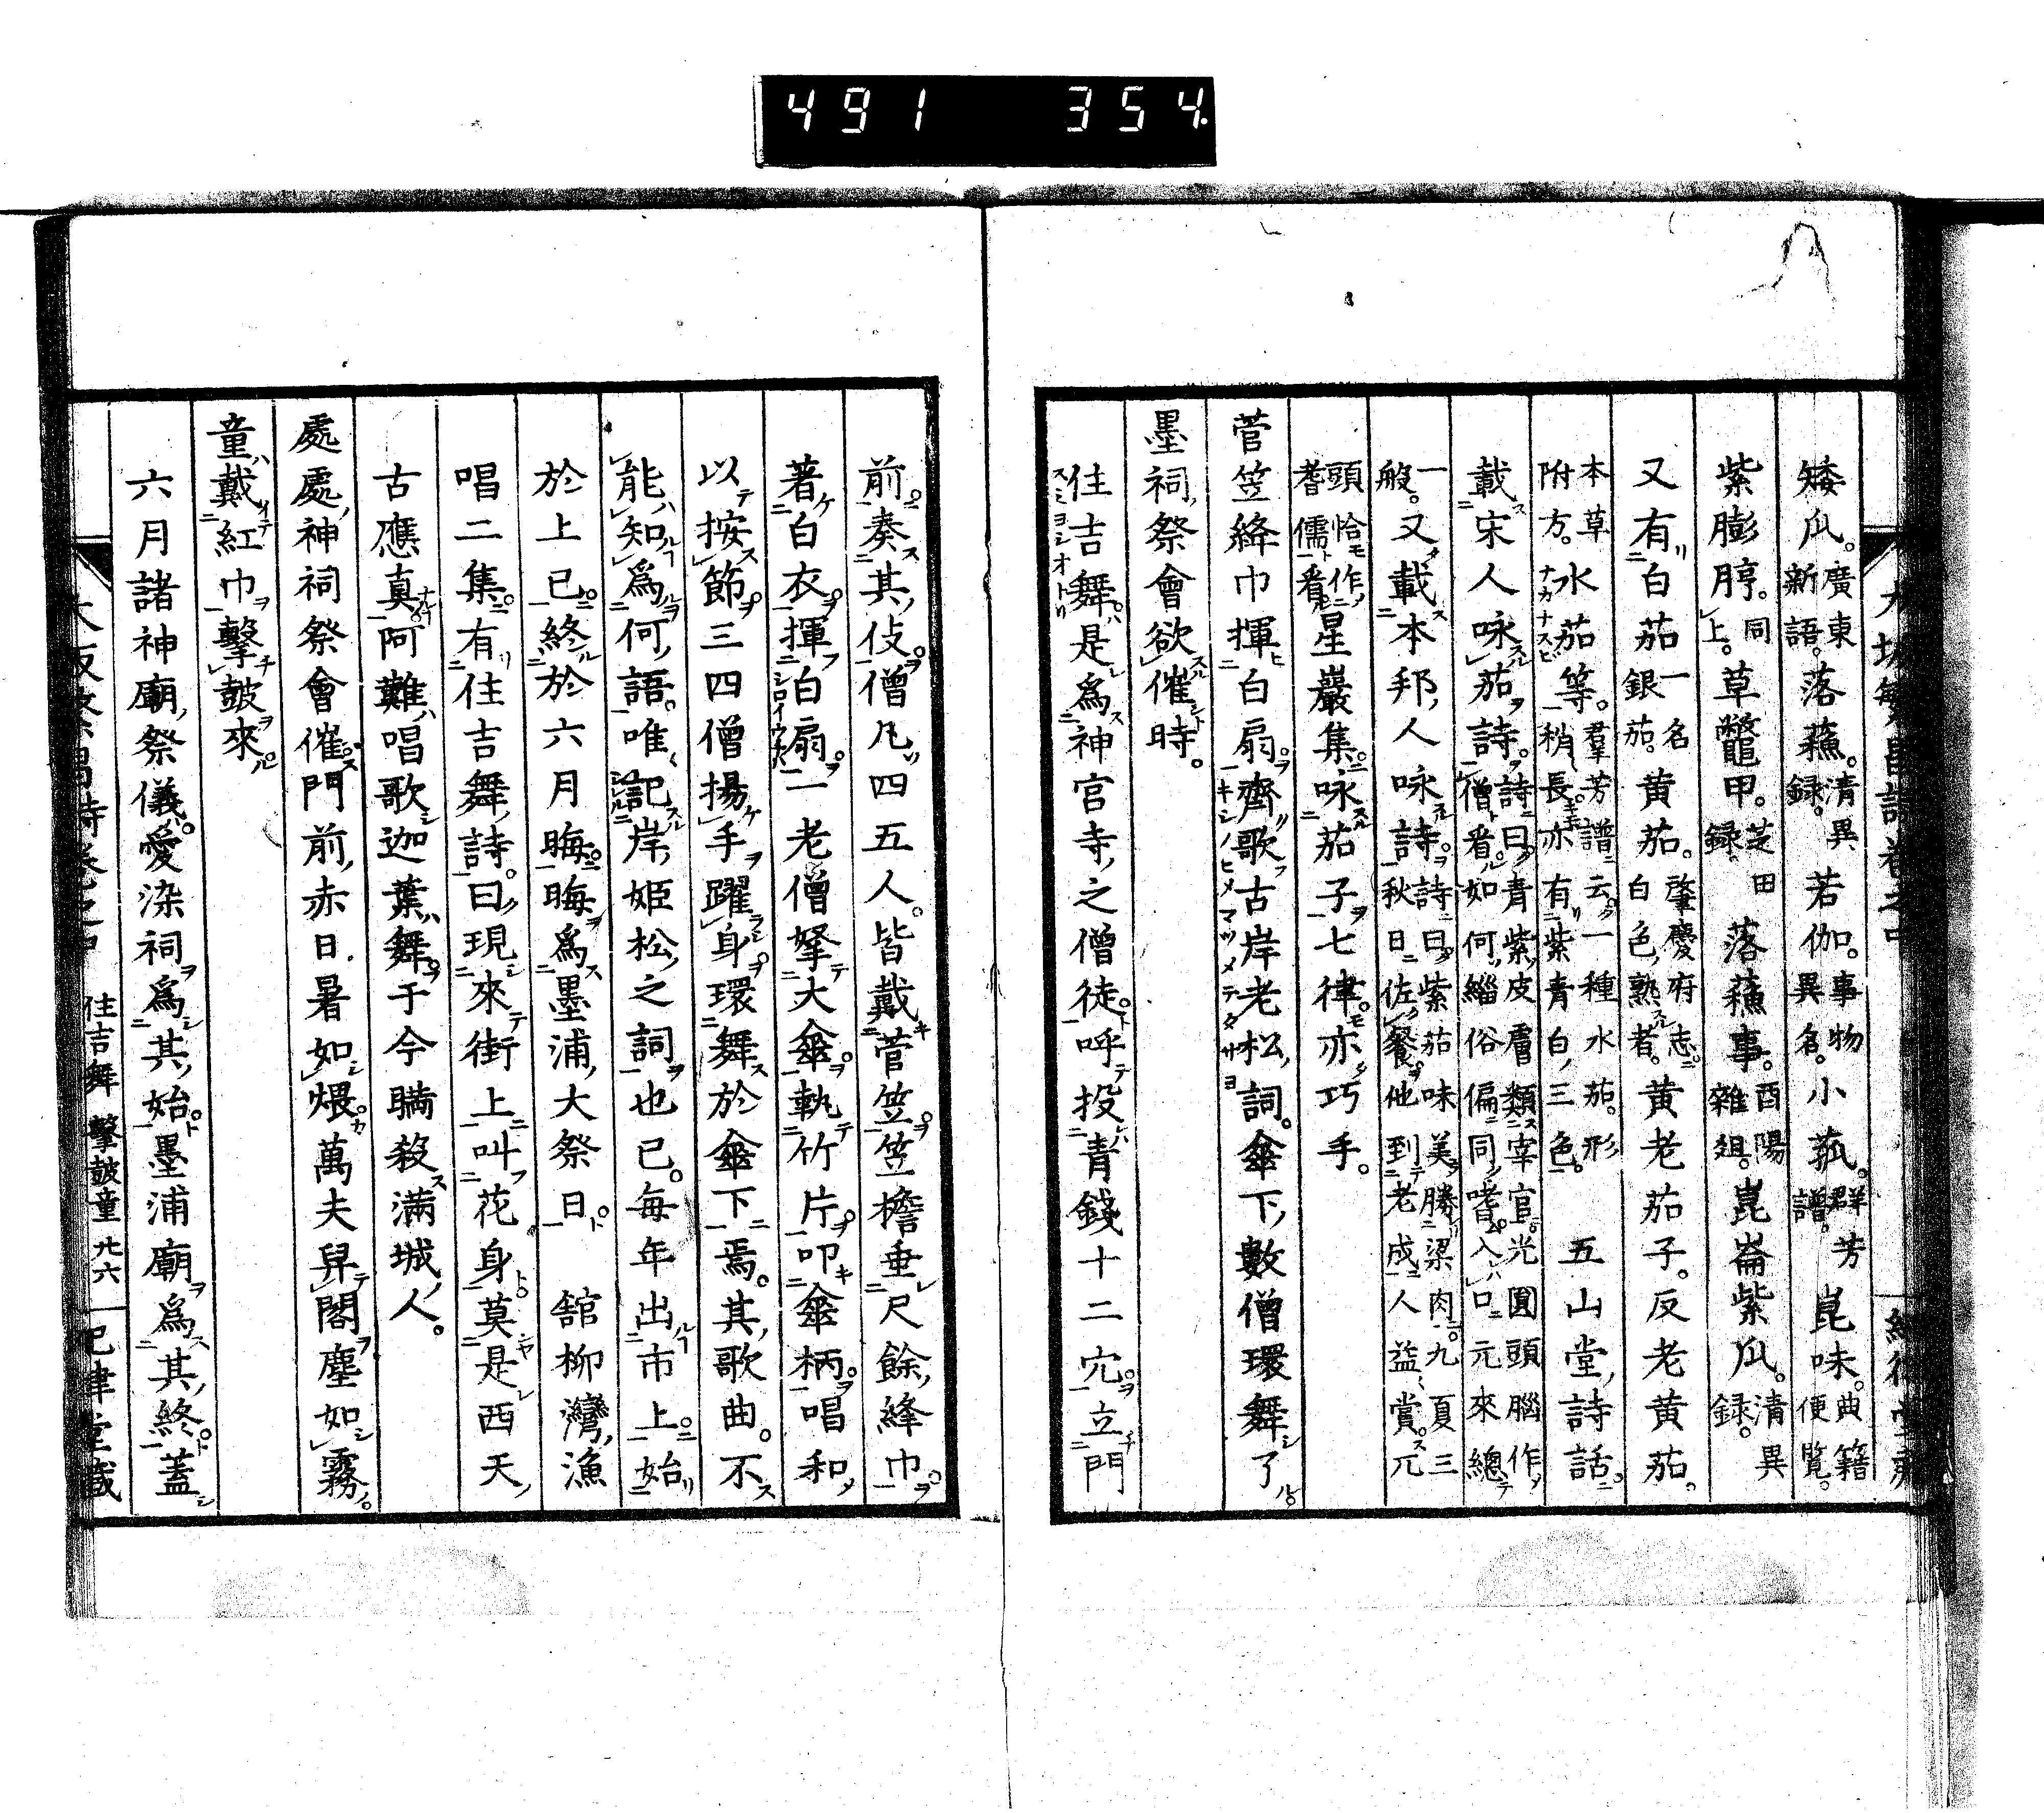 491 354.
矮瓜。廣東新語。落蘓。清異録。若伽。事物異名。小菰。群芳譜。崑味。典籍便覧。
紫膨脝。同上。草鼈甲。芝田録。落蘓事。酉陽雜俎。崑崙紫瓜。清異録。
又有白茄一名銀茄。黄茄。肇慶府志。白色熟者。黄老茄子。反老黄茄。
本草附方。水茄等。羣芳譜云一種水茄。形稍長亦有紫青白三色。五山堂詩話。
載宋人咏茄詩。詩曰青紫皮膚類宰官光圓頭腦作僧看如何緇俗偏同嗜入口元來總
一般。又載本邦人咏詩。詩曰紫茄味美勝梁肉九夏三秋日佐餐他到老成人益賞元
頭恰作耆儒看。星巖集咏茄子七律亦巧手。
菅笠絳巾揮白扇。齊歌古岸老松詞。傘下數僧環舞了
墨祠祭會欲催時。
住吉舞。是爲神官寺之僧徒。呼投青錢十二穴。立門
スミヨシオトリ
キシノヒメマツメテタサヨ
ナカナスビ
前。奏其伎。僧凡四五人。皆戴菅笠。笠檐垂尺餘絳巾。
著白衣。揮白扇。一老僧拏大傘。執竹片。叩傘柄。唱和
以按節。三四僧揚手躍身。環舞於傘下焉。其歌曲。不
能知爲何語。唯記岸姫松之詞也已。每年出市上。始
於上巳。終於六月晦。晦爲墨浦大祭日。 舘柳灣漁
唱二集。有住吉舞詩。曰現來街上叫花身。莫是西天
古應真。阿難唱歌迦葉舞。于今瞞殺満城人。
處處神祠祭會催。門前赤日暑如煨。萬夫舁閣塵如霧。
童戴紅巾擊鼓來。
六月諸神廟祭儀。愛染祠爲其始。墨浦廟爲其終。蓋
住吉舞 擊鼓童 廿六